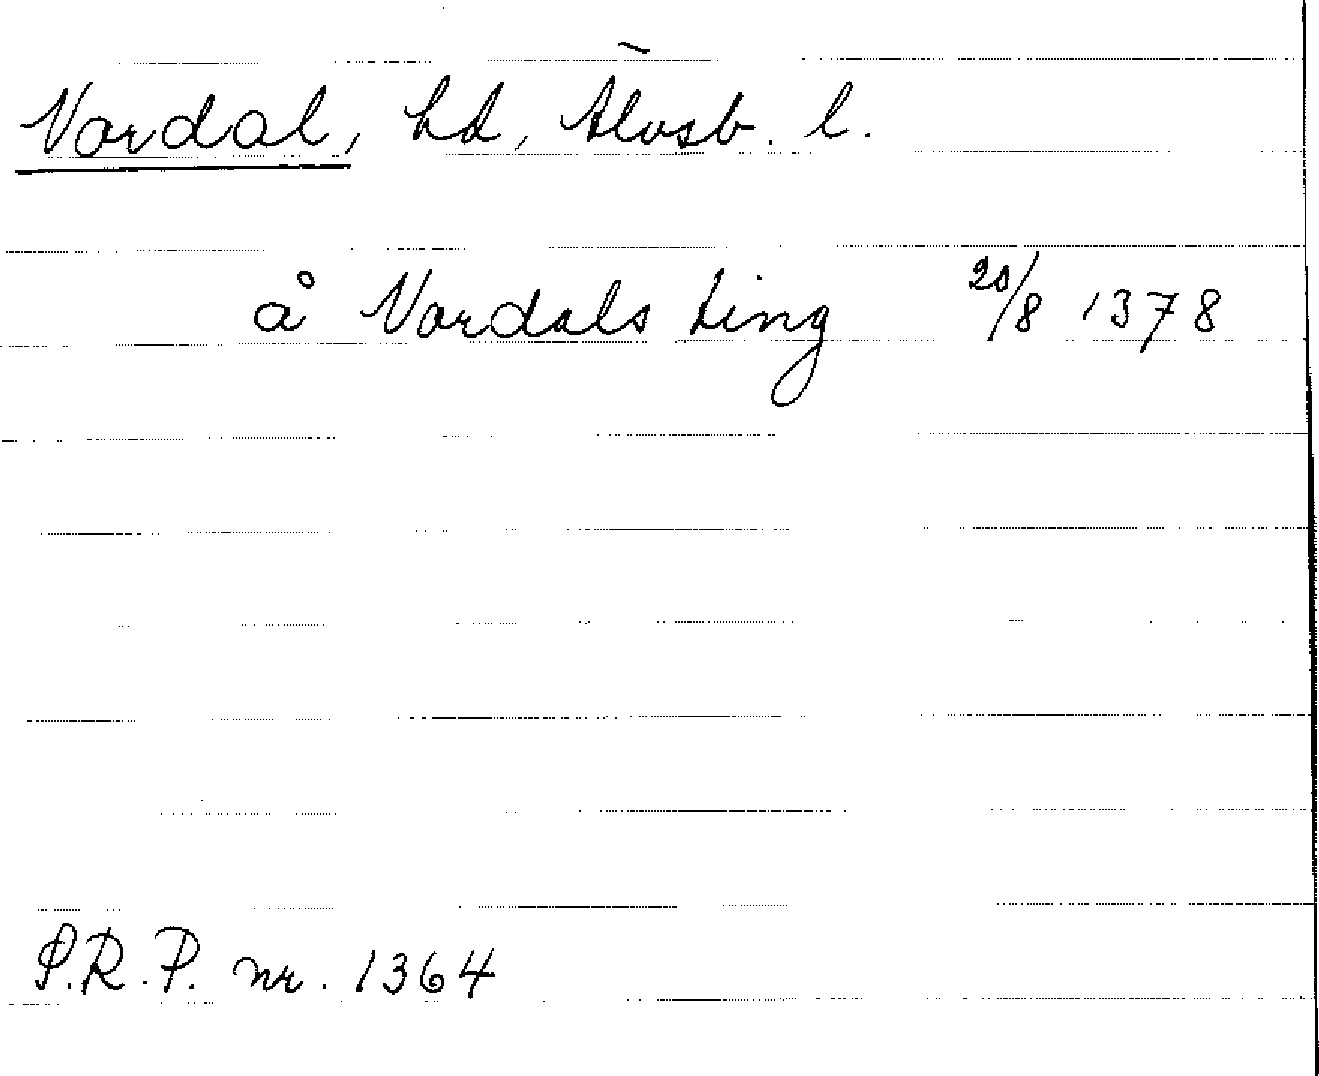 Vardal, hd, Älvsb. l.
å Vardals ting 20/8 1378
S.R.P. nr. 1364